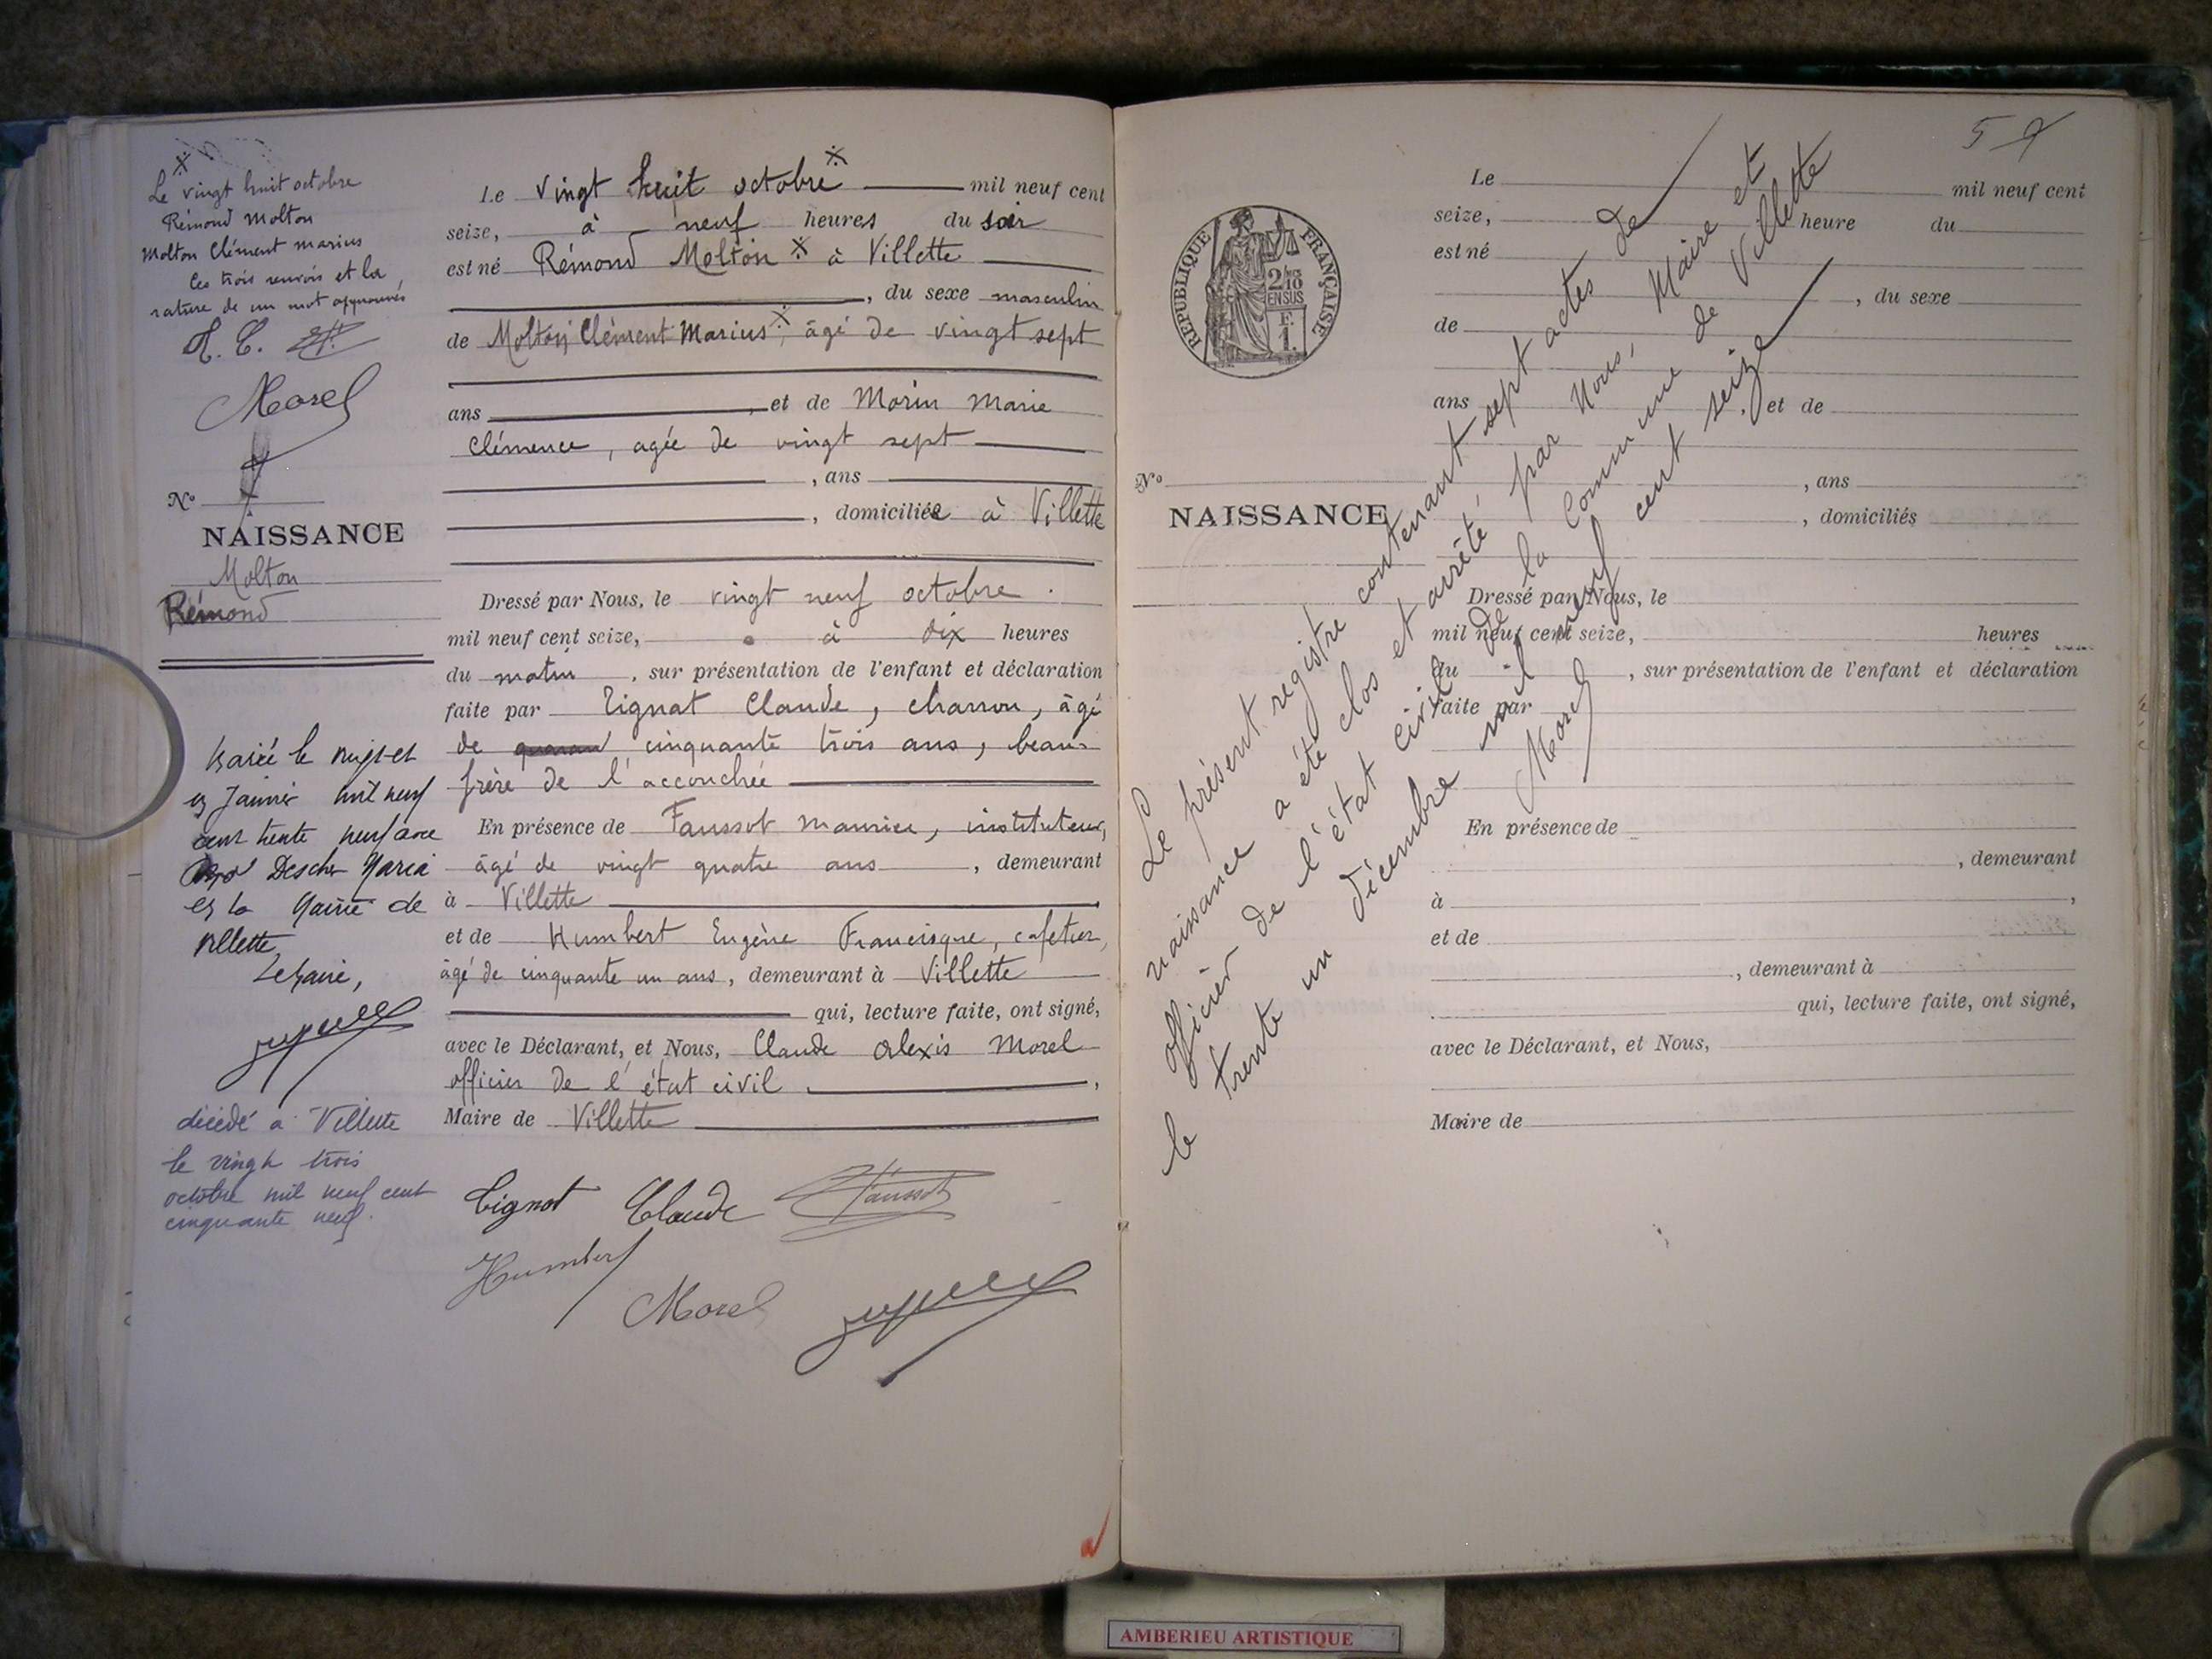 Le vingt huit octobre
Rémond Molton
Molton Clément Marius
Ces trois renvois et la
rature de un mot approuvés
Morel
N°
NAISSANCE
Molton
Rémond
Marié le vingt et
un Janvier mil neuf
cent trente neuf avec
Descher Maria
en la Mairie de
Villette
Le Maire,
décédé à Villette
le vingt trois
octobre mil neuf cent
cinquante neuf.
Le vingt huit octobre mil neuf cent
seize, à neuf heures du soir
est né Rémond Molton à Villette
, du sexe masculin
de Molton Clément Marius, âgé de vingt sept
ans , et de Morin Marie
Clémence, agée de vingt sept
, ans
, domiciliés à Villette
Dressé par Nous, le vingt neuf octobre
mil neuf cent seize, à dix heures
du matin , sur présentation de l'enfant et déclaration
faite par Tignat Claude, charron, âgé
de quaran cinquante trois ans, beau-
frère de l'accouchée
En présence de Faussot Maurice, instituteur,
âgé de vingt quatre ans , demeurant
à Villette ,
et de Humbert Eugène Francisque, cafetier,
âgé de cinquante un ans, demeurant à Villette
qui, lecture faite, ont signé,
avec le Déclarant, et Nous, Claude Alexis Morel
officier de l'état civil ,
Maire de Villette
Tignat Claude Faussot
Humbert
Morel
57
REPUBLIQUE FRANÇAISE
2/10
EN SUS
F.
1.
Le mil neuf cent
seize, heure du
est né
, du sexe
de
ans , et de
N° , ans
NAISSANCE , domiciliés
Dressé par Nous, le
mil neuf cent seize, heures
du , sur présentation de l'enfant et déclaration
faite par
En présence de
, demeurant
à ,
et de
, demeurant à
qui, lecture faite, ont signé,
avec le Déclarant, et Nous,
Maire de
Le présent registre contenant sept actes de
naissance a été clos et arrêté, par Nous, Maire et
officier de l'état civil de la Commune de Villette
le trente un décembre mil neuf cent seize
Morel
AMBERIEU ARTISTIQUE